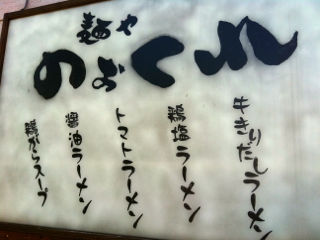 麺や
のおくれ
牛きりだしラーメン
鶏塩ラーメン
トマトラーメン
醤油ラーメン
鶏がらスープ